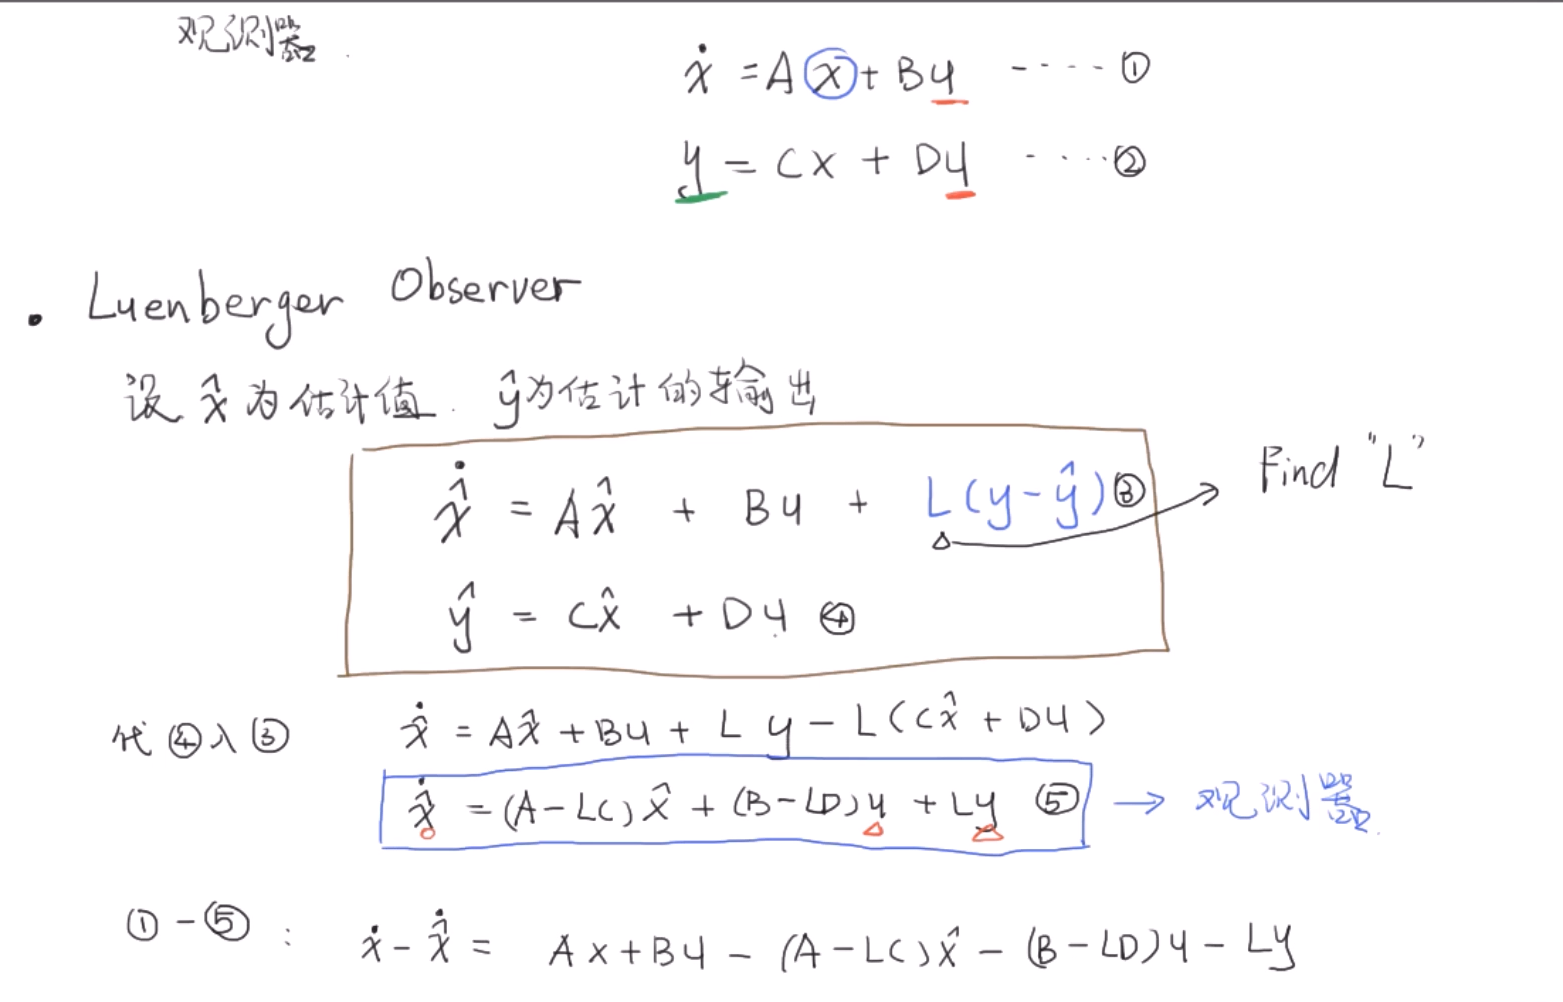 观测器.
ẋ = Ax + Bu ---- ①
y = Cx + Du ---- ②
• Luenberger Observer
设 x̂ 为估计值. ŷ为估计的输出
x̂̇ = Ax̂ + Bu + L(y-ŷ) ③ → Find "L"
ŷ = Cx̂ + Du ④
代④入③ x̂̇ = Ax̂ + Bu + Ly - L(Cx̂ + Du)
x̂̇ = (A-LC)x̂ + (B-LD)u + Ly ⑤ → 观测器.
①-⑤: ẋ - x̂̇ = Ax + Bu - (A-LC)x̂ - (B-LD)u - Ly